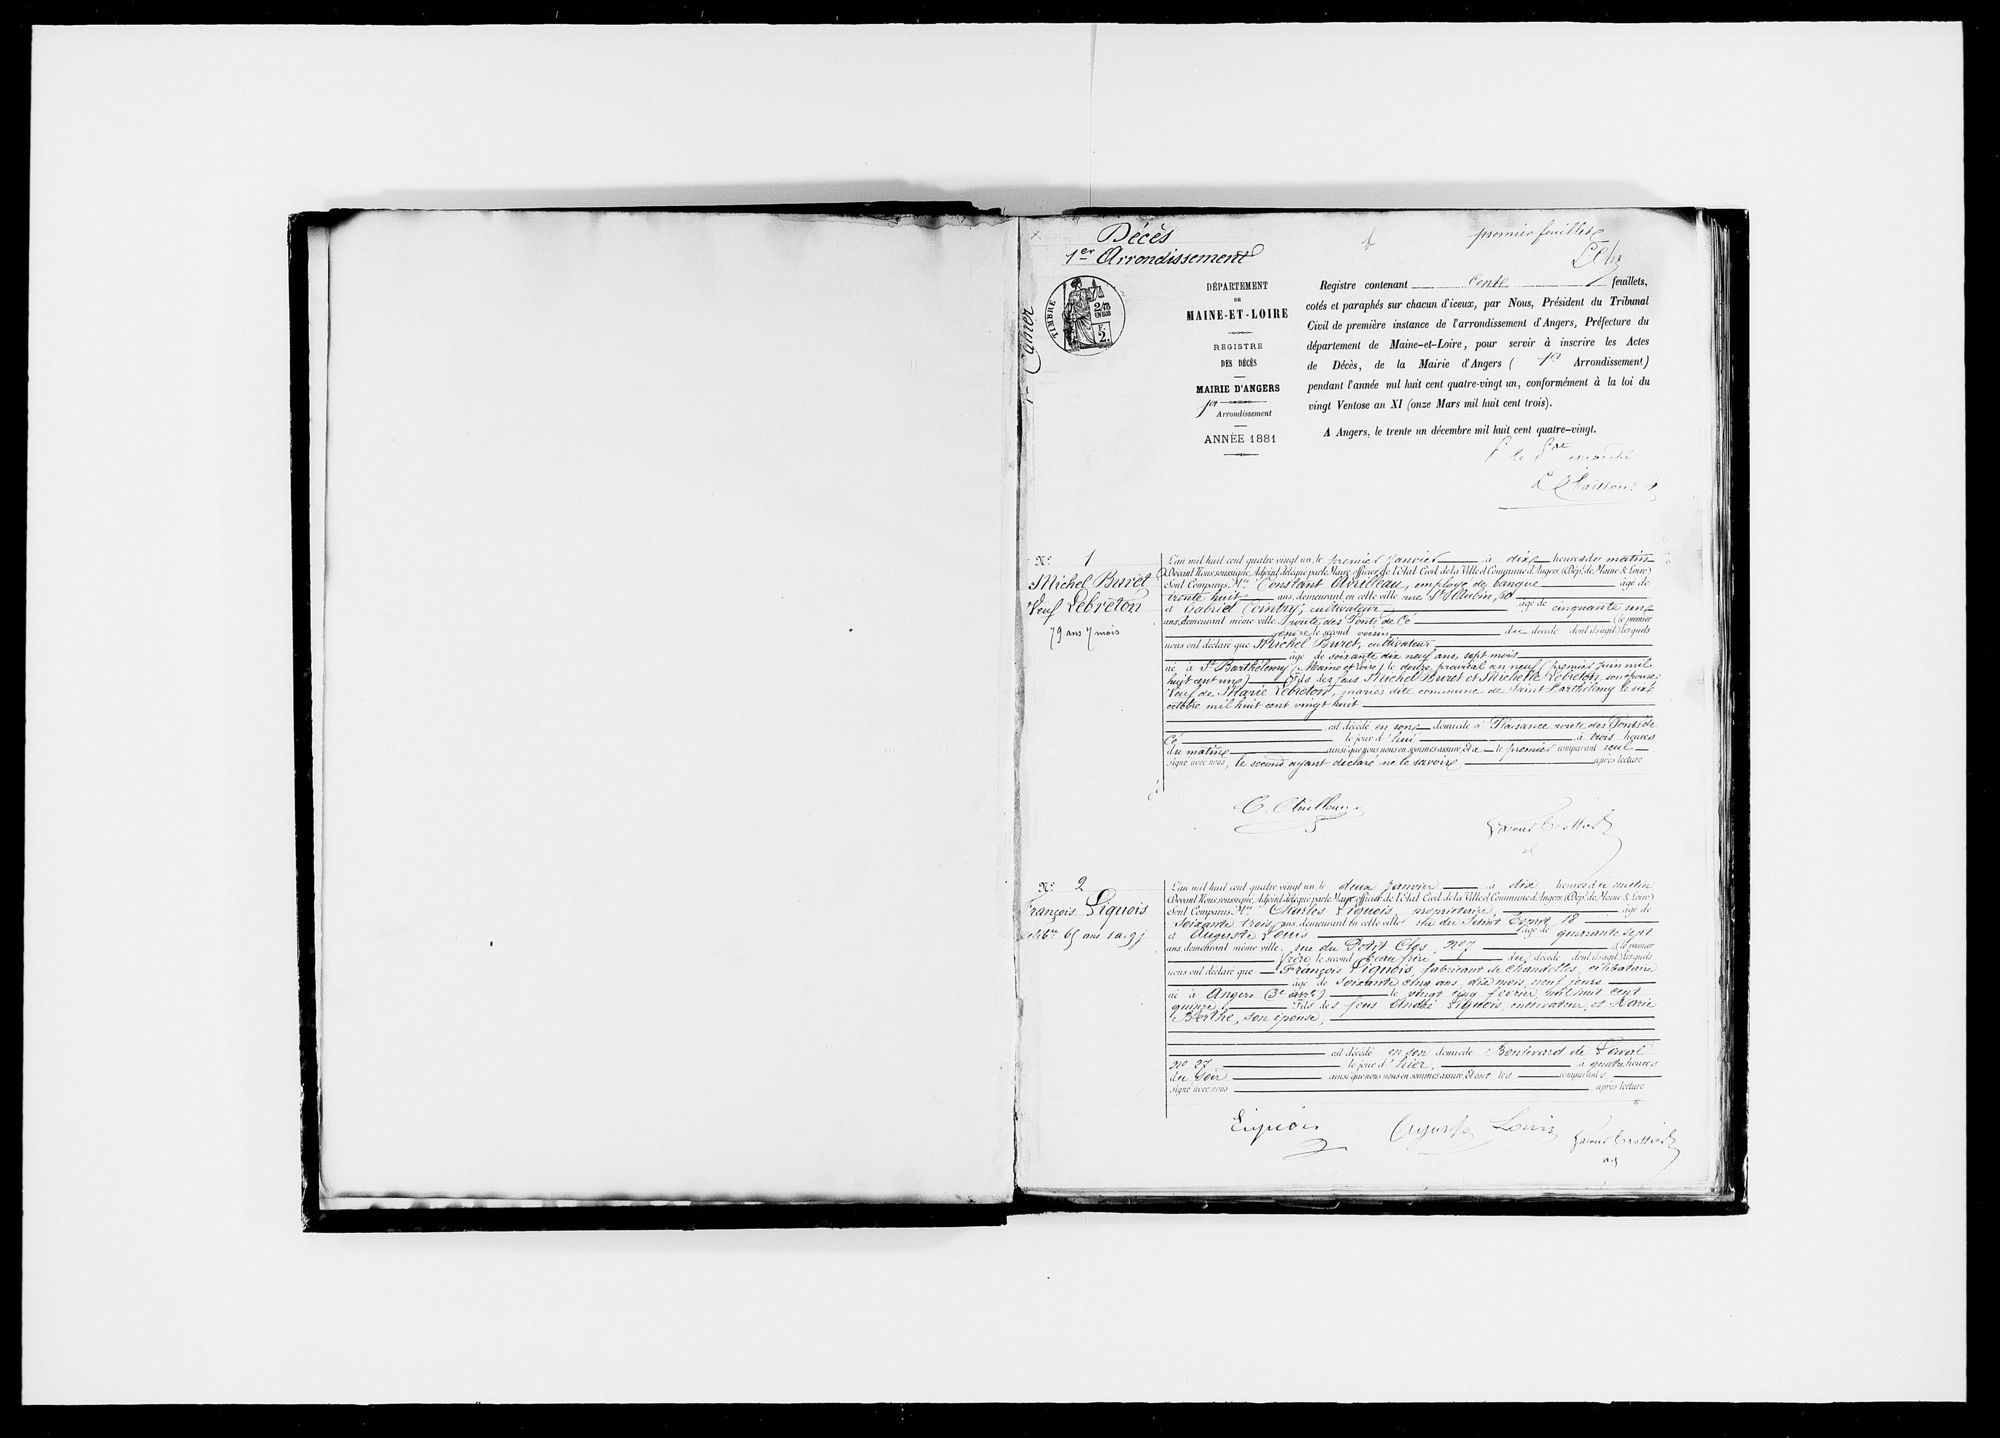 Décès
1er Arrondissement
premier feuillet
1er Cahier
TIMBRE
2/10
EN SUS
F.
2.
DÉPARTEMENT
DE
MAINE-ET-LOIRE
REGISTRE
DES DÉCÈS
MAIRIE D'ANGERS
1er
Arrondissement
ANNÉE 1881
Registre contenant feuillets,
cotés et paraphés sur chacun d'iceux, par Nous, Président du Tribunal
Civil de première instance de l'arrondissement d'Angers, Préfecture du
département de Maine-et-Loire, pour servir à inscrire les Actes
de Décès, de la Mairie d'Angers ( 1er Arrondissement)
pendant l'année mil huit cent quatre-vingt un, conformément à la loi du
vingt Ventose an XI (onze Mars mil huit cent trois).
A Angers, le trente un décembre mil huit cent quatre-vingt.
No 1
Michel Buret
Veuf Lebreton
79 ans 7 mois
L'an mil huit cent quatre vingt un, le premier Janvier à dix heures du matin
Devant Nous soussigné, Adjoint délégué par le Maire, officier de l'Etat Civil de la Ville et Commune d'Angers, (Dépt. de Maine & Loire)
Sont Comparus Mrs Constant Avrilleau, employé de banque âgé de
trente huit ans, demeurant en cette ville rue St Aubin,
et Gabriel, cultivateur âgé de cinquante un
ans, demeurant même ville, route des Ponts de Cé (le premier
gendre le second voisin du décédé dont il s'agit) lesquels
nous ont déclaré que Michel Buret, cultivateur
âgé de soixante dix neuf ans, sept mois
né à St Barthélemy (Maine et Loire) le douze prairial an neuf (premier juin mil
huit cent un) Fils des feus Michel Buret et Michelle Lebreton, son épouse;
Veuf de Marie Lebreton, mariés dite commune de Saint Barthélemy le six
octobre mil huit cent vingt huit
est décédé en son domicile à Plaisance route des Ponts de
Cé le jour d'hui à trois heures
du matin ainsi que nous nous en sommes assuré, Et a le premier comparant seul
signé avec nous, le second ayant déclaré ne le savoir après lecture
No 2
François Liquois
célibre 65 ans 10 m. 9 j
L'an mil huit cent quatre vingt un, le deux Janvier à dix heures du matin
Devant Nous soussigné, Adjoint délégué par le Maire, officier de l'Etat Civil de la Ville et Commune d'Angers, (Dépt. de Maine & Loire)
Sont Comparus Mrs Charles Liquois, propriétaire, âgé de
soixante trois ans, demeurant en cette ville rue du Saint Esprit 18
et Auguste Louis âgé de quarante sept
ans, demeurant même ville, rue du Petit Clos, no 7 (le premier
frère le second beau frère du décédé dont il s'agit) lesquels
nous ont déclaré que François Liquois, fabricant de chandelles, célibataire
âgé de soixante cinq ans, dix mois, neuf jours
né à Angers (3e arrdt) le vingt cinq février mil huit cent
quinze, Fils des feus André Liquois, cultivateur, et Marie
Berthe, son épouse,
est décédé en son domicile Boulevard de Laval
no 37 le jour d'hier, à quatre heures
du soir ainsi que nous nous en sommes assuré, Et ont les comparants
signé avec nous après lecture
Liquois
Auguste Louis